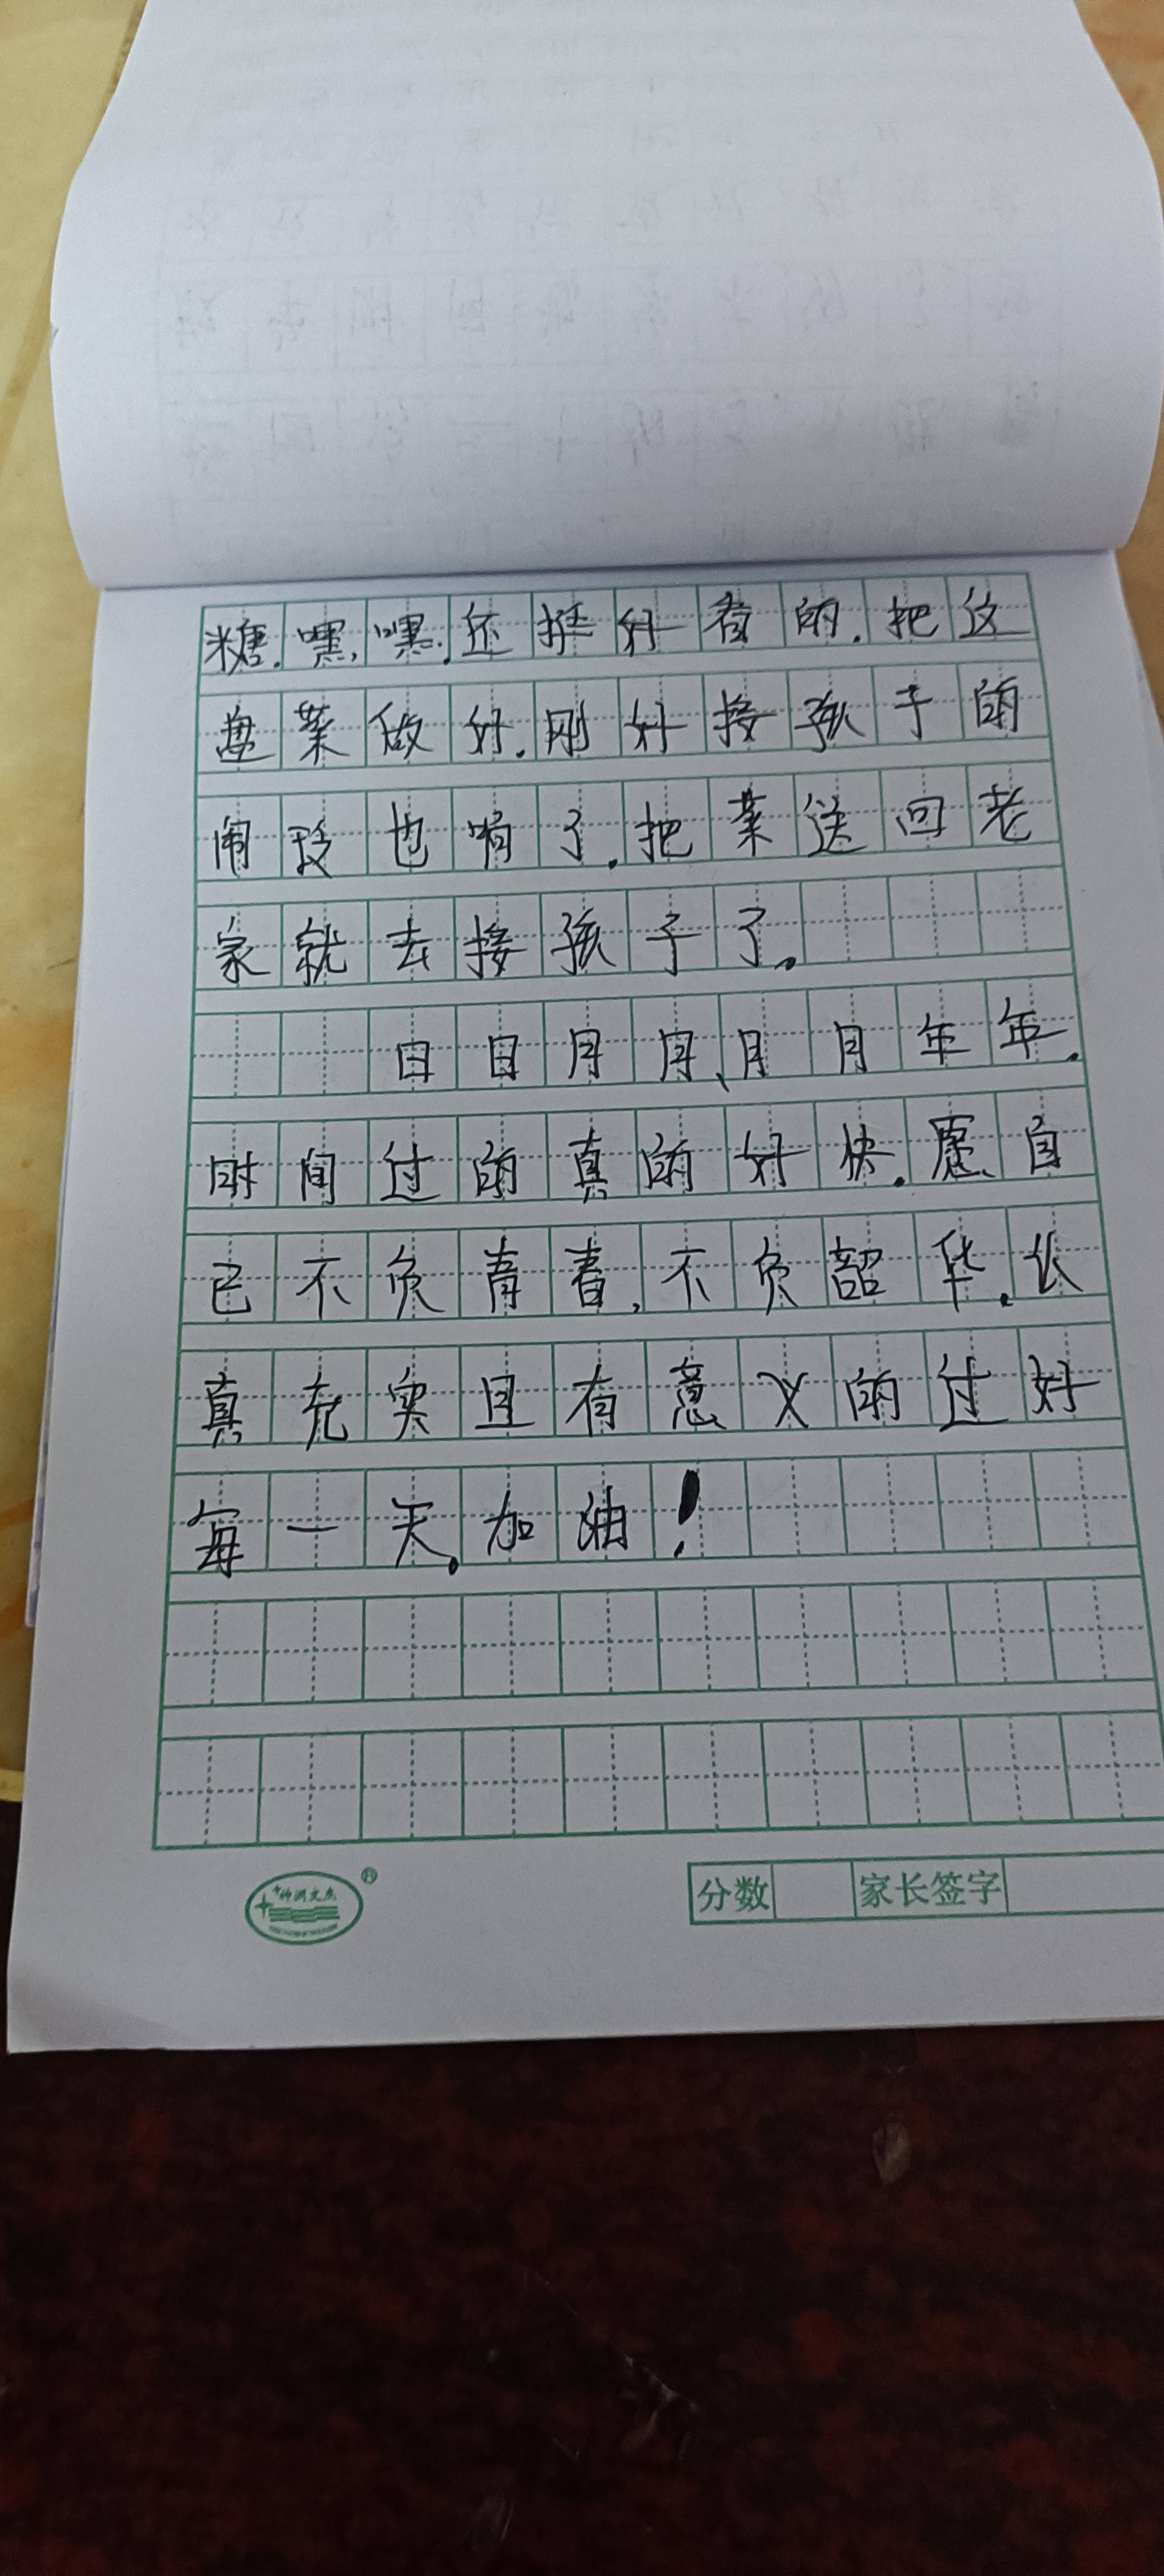 糖.嘿,嘿.还挺好看的.把这
盘菜做好.刚好接孩子的
闹玲也响了.把菜送回老
家就去接孩子了。
日日月月、月月年年.
时间过的真的好快.愿自
己不负青春,不负韶华.认
真充实且有意义的过好
每一天。加油！
分数 家长签字